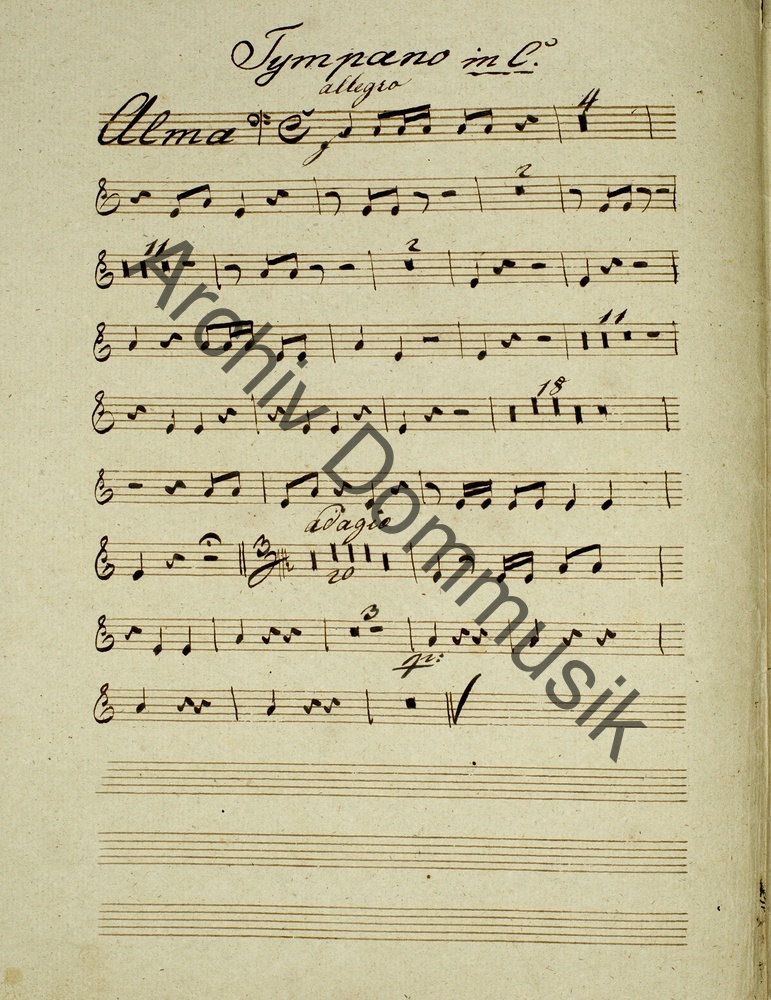 Tympano in C.
allegro
Alma
4
2
11
2
11
18
adagio
3
20
3
p:
Archiv Dommusik